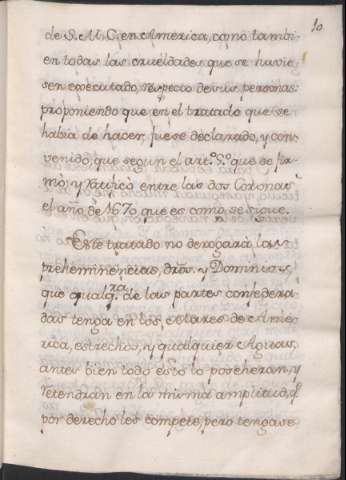 10
de S. M. C. en America, como tambi-
en todas las crueldades que se huvie
sen executado, respecto de sus personas:
proponiendo que en el tratado que se
habia de hacer, fuese declarado, y con-
venido, que segun el art.º 8.º que se fir
mò, y ratificò entre las dos Coronas
el año de 1670, que es como se sigue.
Este tratado no derogarà las
preheminencias, dros. y Dominios,
que qualq.ra de las partes confedera-
das tenga en los Mares de Ame
rica, estrechos, y qualquier Aguas,
antes bien todo esto lo poseheran, y
retendràn en la misma amplitud, q.
por derecho les compete, pero tengase